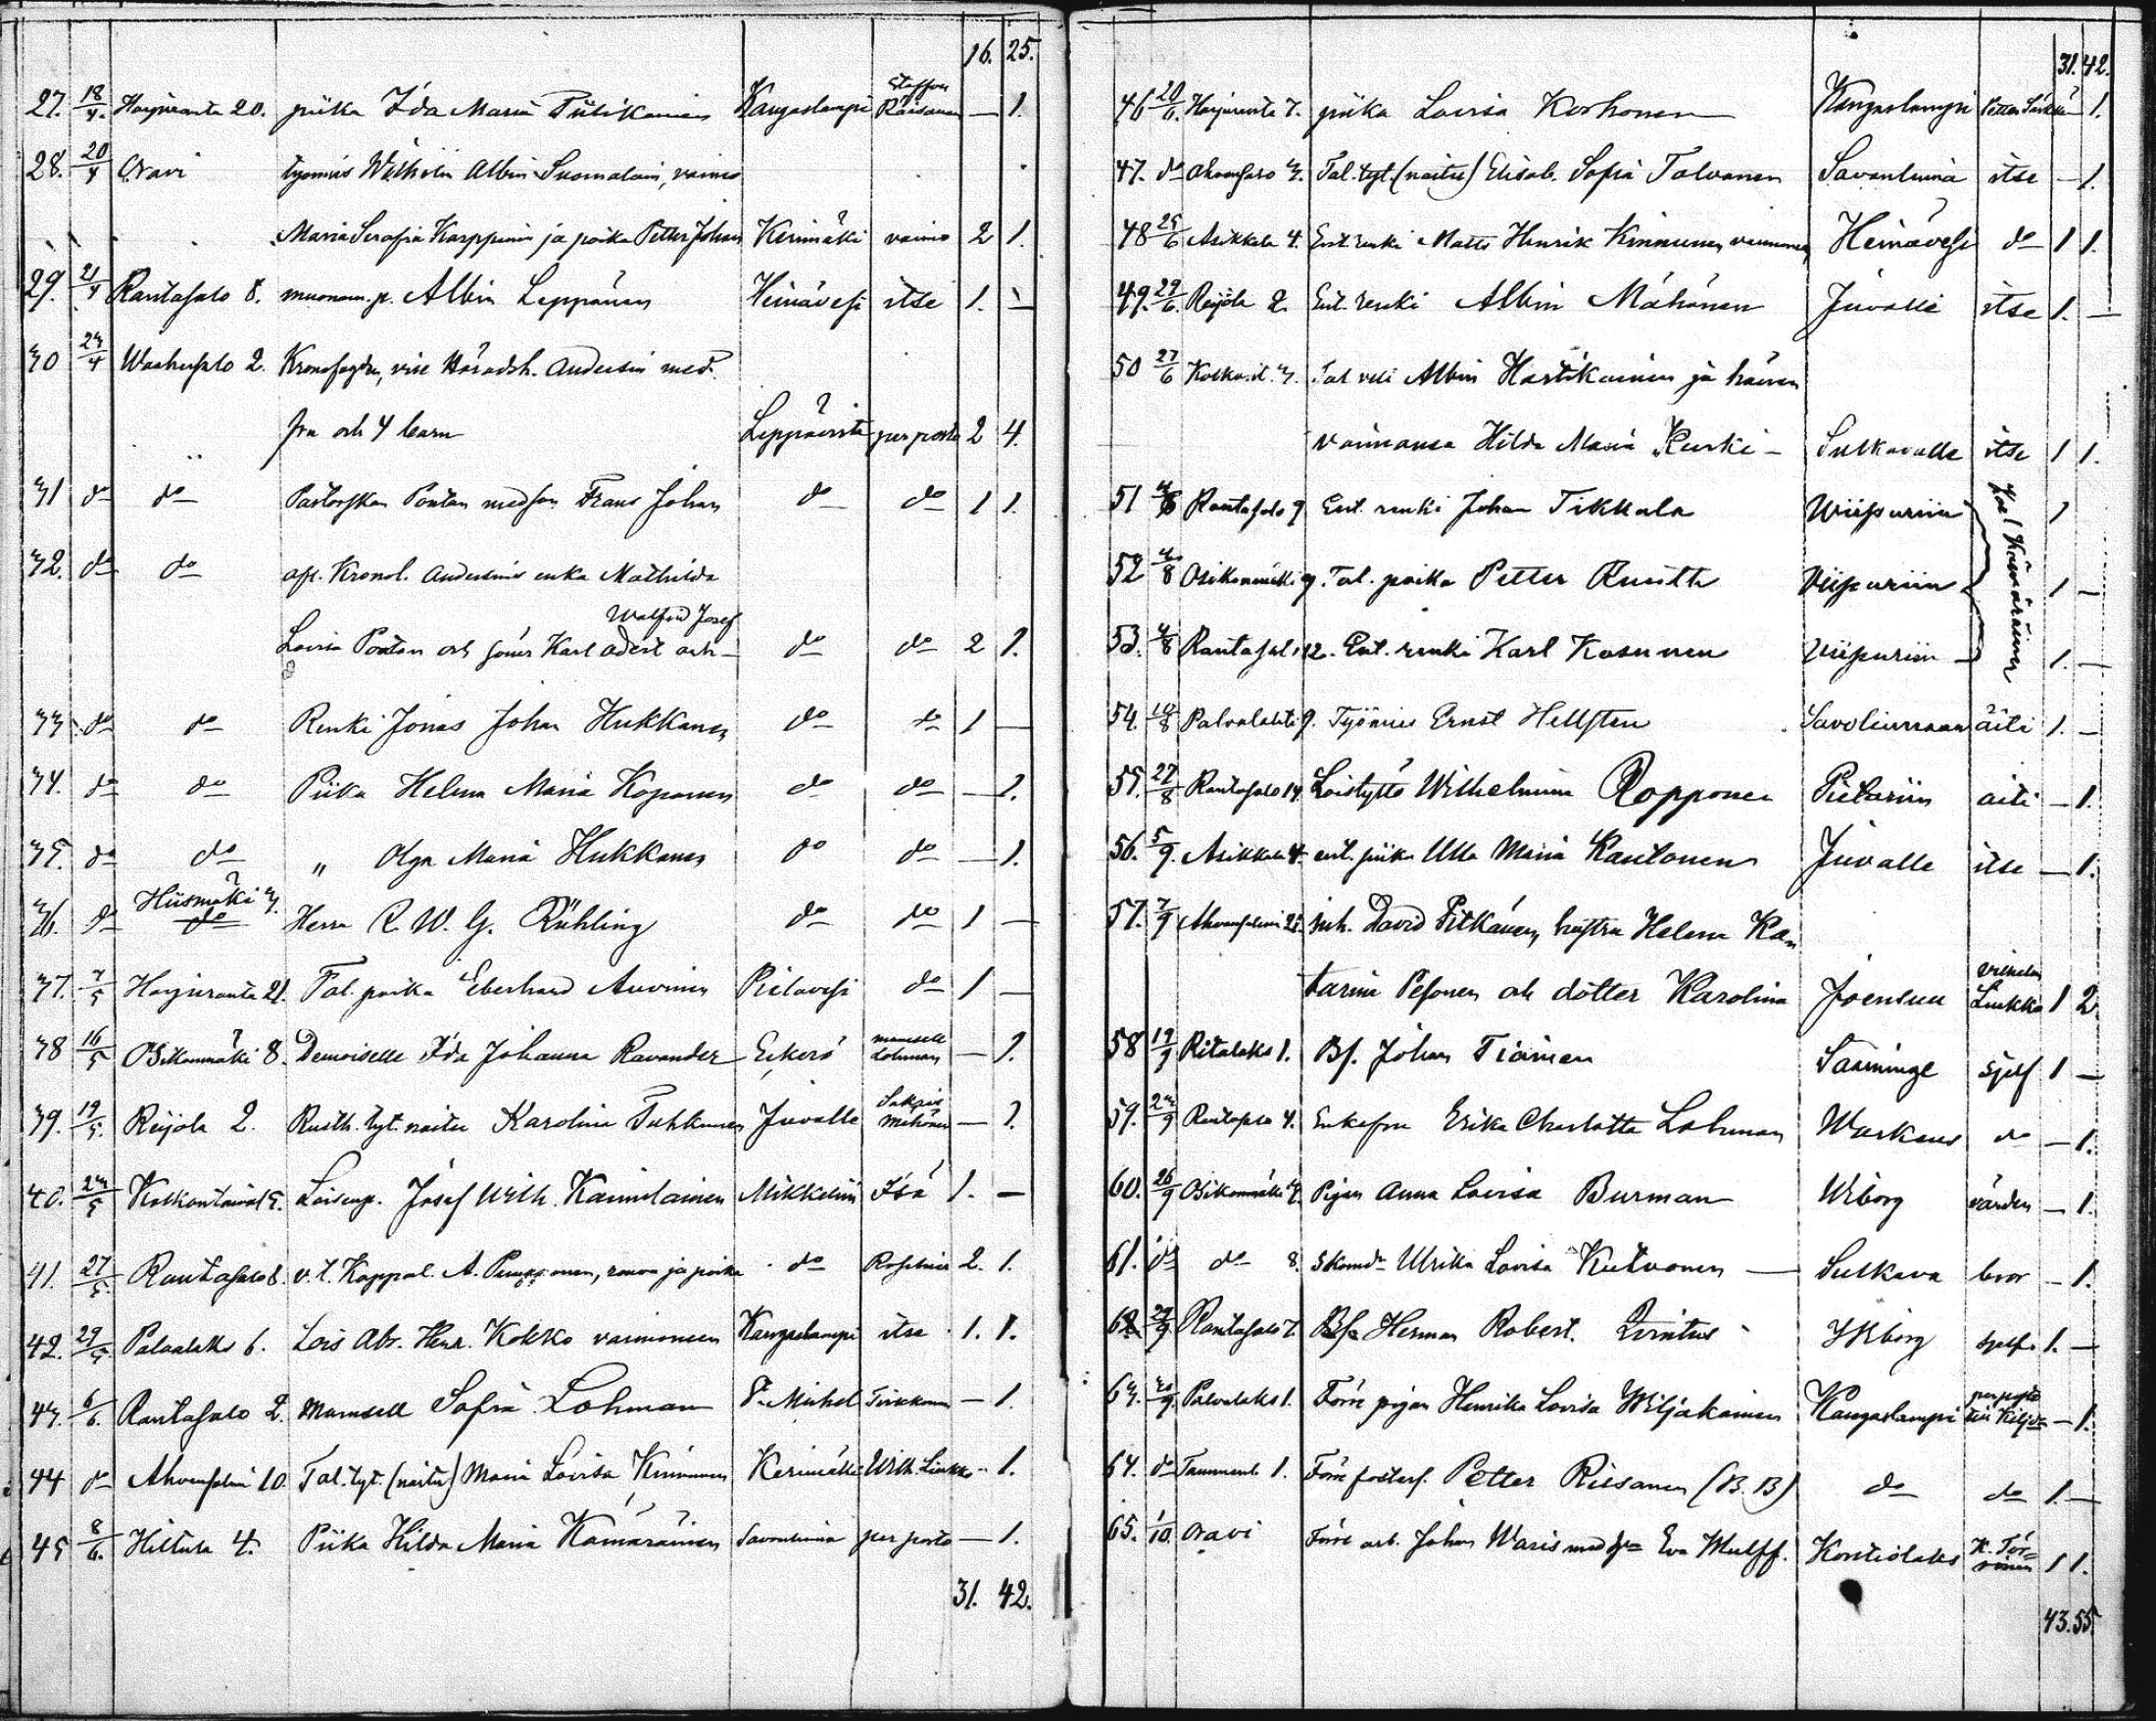 16. 25.
27. 18/4. Harjuranta 20. piika Ida Maria Pülikainen Kangaslampi Staffan Räisänen — 1.
28. 20/4 Oravi työmies Wilhelm Albin Suomalain, vaimo
Maria Serafia Karppinen ja poika Petter Johan Kerimäki vaimo 2 1.
29. 21/4 Rantasalo 8. muonam. p. Albin Leppänen Heinävesi itse 1. —
30 23/4 2. Kronofogden, vice Häradsh. Andersin med
fru och 4 barn Leppävirta per posto 2 4.
31 do do Pastorskan Pontan med son Frans Johan do do 1 1.
32. do do afl. Kronol. Andersins enka Mathilda
Walfrid Josef
Lovisa Pontan och söner Karl och — do do 2 1.
33. do do Renki Jonas Johan Hukkanen do do 1 —
34. do do Piika Helena Maria Koponen do do — 1.
35. do do „ Olga Maria Hukkanen do do — 1.
36. do Hiismäki 3. do Herr R. W. G. Rühling do do 1 —
37. 7/5 Harjuranta 21. Tal. poika Eberhard Auvinen Pielavesi do 1 —
38 16/5 Osikonmäki 8. Demoiselle Ida Johanna Ravander Eckerö mamsell Lohman — 1.
39. 19/5. Reijola 2. Rusth. tyt. naitu Karolina Tuhkunen Juvalle Mähönen — 1.
40. 23/5 5. Loisenp. Josef Wilh. Kainulainen Mikkeliin Isä 1. —
41. 27/5. Rantasalo 8. v. t. Kappal. A. rouva ja poika do 2. 1.
42. 29/5. Palvalaks 6. Lois Abr. Henr. Kokko vaimoneen Kangaslampi itse 1. 1.
43. 6/6. Rantasalo 2. Mamsell Sofia Lohman S:t Michel Tirkkonen — 1.
44 do Ahvensalmi 10. Tal. tyt. (naitu) Maria Lovisa Kinnunen Kerimäki Wilh. Liukko — 1.
45 8/6. Hiltula 4. Piika Hilda Maria Kämäräinen Savonlinna per posto — 1.
31. 42.
31. 42.
46 20/6. Harjuranta 7. piika Lovisa Korhonen Kangaslampi Petter Särkkä 1.
47. do 3. Tal. tyt. (naitu) Elisab. Sofia Tolvanen Savonlinna itse — 1.
48 25/6 Asikkala 4. Ent. renki Matts Henrik Kinnunen vaimoneen, Heinävesi do 1 1.
49. 29/6. Reijola 2. Ent. renki Albin Mähönen Juvalle itse 1. —
50 27/6 3. Tal veli Albin Hartikainen ja hänen
vaimonsa Hilda Maria Kurki — Sulkavalle itse 1 1.
51 4/8 Rantasalo 9 Ent. renki Johan Tikkala Wiipuriin Kämäräinen 1
52 4/8 Osikonmäki 9. Tal. poika Petter Ruuth Viipuriin 1 —
53. 4/8 Rantasalo 12. Ent. renki Karl Kosunen Viipuriin — 1. —
54. 14/8 Palvalahti 9. Työmies Ernst Hellsten Savolinnaan äiti 1. —
55. 27/8 Rantasalo 14. Loistyttö Wilhelmina Ropponen Pietariin äiti — 1.
56. 5/9. Asikkala 4. ent. piika Ulla Maria Rautonen Juvalle itse — 1.
57. 7/9 Ahvensalmi 21. inh. David Pitkänen, hustru Helena Ka-
tarina Pesonen och dotter Karolina Joensuu Vilhelm Liukko 1 2
58 19/9 Ritalaks 1. Bs. Johan Tiainen Sääminge sjelf 1 —
59. 23/9 Rantasalo 4. Enkefru Erika Charlotta Lohman Warkaus do — 1.
60. 26/9 Osikonmäki 4. Pigan Anna Lovisa Burman Wiborg värden — 1.
61. do do 8. Skomd. Ulrika Lovisa Kutvonen — Sulkava bror — 1.
62. 29/9. Rantasalo 7. Bs. Herman Robert. Wiborg sjelf. 1. —
63. 30/9 Palvalaks 1. Förre pigan Henrika Lovisa Wiljakainen Kangaslampi per posto — 1.
64. do 1. Förre fosters. Petter Riisanen (B. B) do do 1. —
65. 1/10. Oravi Förre arb. Johan Waris med hu Eva Wulff. Kontiolaks 1 1.
43. 55.